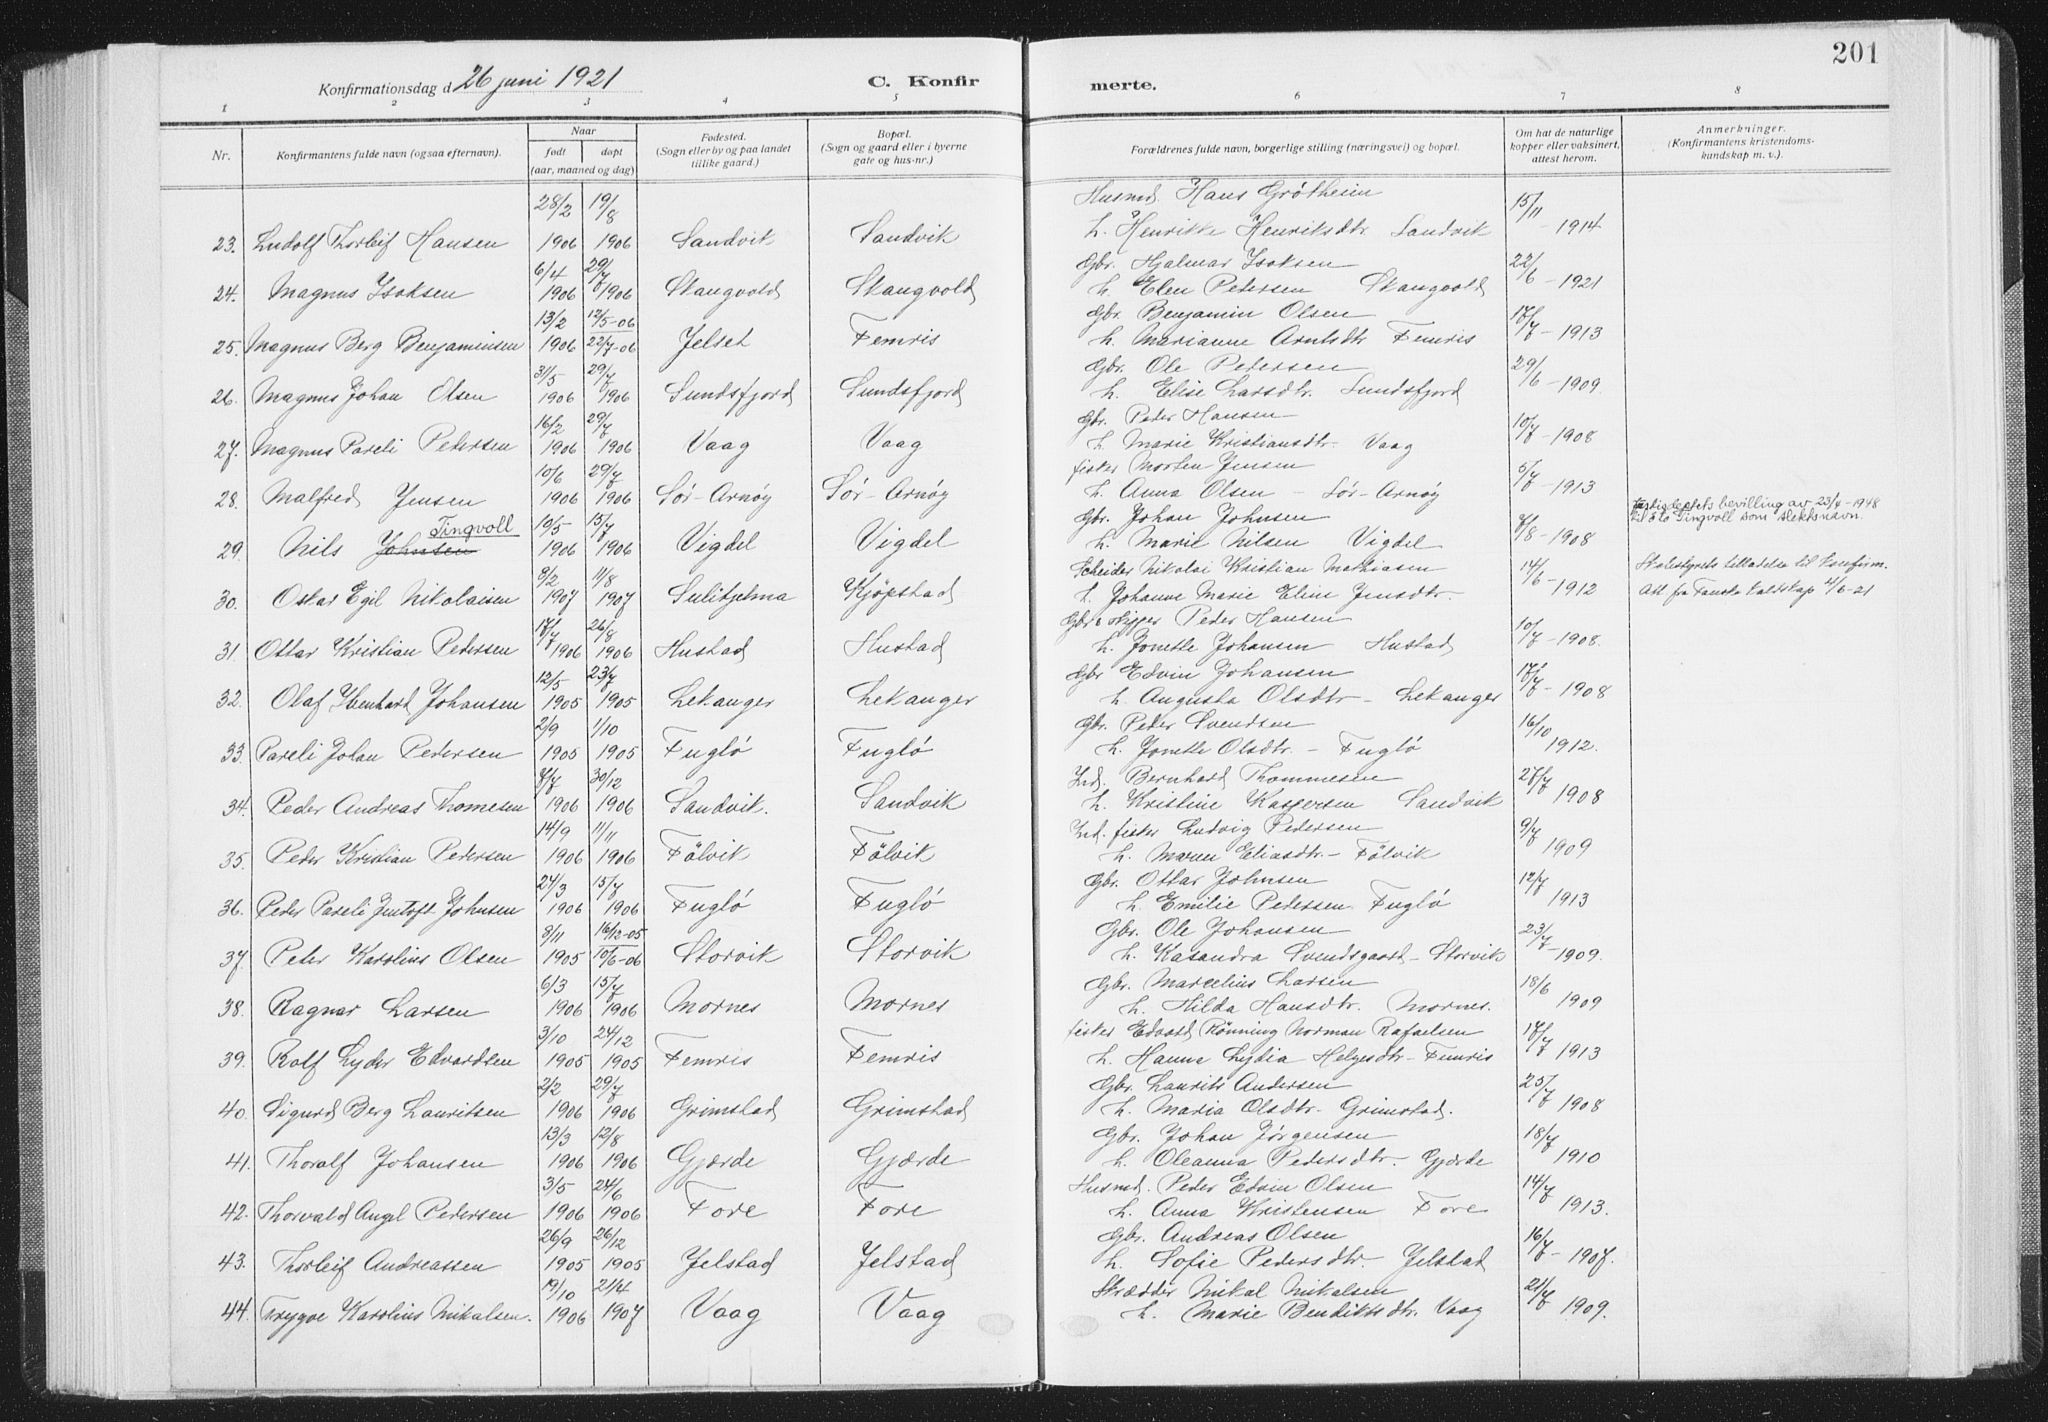 201
Konfirmationsdag d. 26 juni 1921 C. Konfir merte.
1 2 3 4 5 6 7 8
Nr. Konfirmantens fulde navn (ogsaa efternavn). Naar født døpt (aar, maaned og dag) Fødested. (Sogn eller by og paa landet tillike gaard.) Bopæl. (Sogn og gaard eller i byerne gate og hus-nr.) Forældrenes fulde navn, borgerlige stilling (næringsvei) og bopæl. Om hat de naturlige kopper eller vaksinert, attest herom. Anmerkninger. (Konfirmantens kristendomskundskap m. v.).
28/2 19/8 Husmd. Hans Grøtheim 15/11
23. Ludolf Thorleif Hansen 1906 1906 Sandvik Sandvik h. Henrikke Henriksdtr. Sandvik - 1914
6/4 29/7 Gbr. Hjalmar Isaksen 22/6
24. Magnus Isaksen 1906 1906 Skaugvold Skaugvold h. Elen Petersen Skaugvold - 1921
13/2 12/5-06 Gbr. Benjamin Olsen 17/7
25. Magnus Berg Benjaminsen 1906 22/7-06 Jelset Femris h. Marianne Arntsdtr Femris - 1913
31/5 29/7 Gbr. Ole Petersen 29/6
26. Magnus Johan Olsen 1906 1906 Sundsfjord Sundsfjord h. Elise Larsdtr. Sundsfjord - 1909
16/2 29/7 Gbr. Peder Hansen 10/7
27. Magnus Pareli Petersen 1906 1906 Vaag Vaag h. Marie Kristiansdtr. Vaag - 1908
10/6 29/7 fisker Morten Jensen 5/7
28. Malfred Jensen 1906 1906 Sør-Arnøy Sør-Arnøy h. Anna Olsen - Sør-Arnøy - 1913
Tingvoll 10/5 15/7 Gbr. Johan Johnsen 7/8 Justisdeptets bevilling av 23/4-1948
29. Nils Johnsen 1906 1906 Vigdel Vigdel h. Marie Nilsen Vigdel - 1908 til å ta Tingvoll som slektsnavn.
9/2 11/8 Scheider Nikolai Kristian Mathiasen 14/6 Skolestyrets tilladelse til konfirm.
30. Oskar Egil Nikolaisen 1907 1907 Sulitjelma Kjøpstad h. Johanne Marie Eline Jensdtr. - 1912 Att fra Fauske kaldskap 4/6-21
17/7 26/8 Gbr. skipper Peder Hansen 10/7
31. Ottar Kristian Pedersen 1906 1906 Hustad Hustad h. Jonette Johansen Hustad - 1908.
12/5 23/7 Gbr Edvin Johansen 17/7
32. Olaf Ibenhard Johansen 1905 1905 Lekanger Lekanger h. Augusta Olsdtr - Lekanger - 1908
2/9 1/10 Gbr. Peder Svendsen 16/10
33. Pareli Johan Pedersen 1905 1905 Fuglø Fuglø h. Jonette Olsdtr. - Fuglø 1912.
7/7 30/12 Ind. Bernhard Thommesen 27/7
34. Peder Andreas Thomesen 1906 1906 Sandvik. Sandvik h. Kristine Kaspersen Sandvik 1908
14/9 11/11 Ind. fisker Ludvig Pedersen 9/7
35. Peder Kristian Pedersen 1906 1906 Følvik Følvik h. Maren Eliasdtr. - Følvik 1909
24/3 15/7 Gbr. Ottar Johnsen 12/7
36. Peder Pareli Jentoft Johnsen 1906 1906 Fuglø Fuglø h. Emilie Pedersen Fuglø 1913
8/11 16/12-05 Gbr. Ole Johansen 23/7
37. Peter Karolius Olsen 1905 10/6-06 Storvik Storvik h. Kasandra Svendsgaard - Storvik - 1909.
6/3 15/7 Gbr. Marcelius Larsen 18/6
38. Ragnar Larsen 1906 1906 Mornes Mornes h. Hilda Hansdtr. Mornes. 1909
3/10 24/12 fisker Edvard Rønning Norman Rafaelsen 17/7
39. Rolf Lyder Edvardsen 1905 1905 Femris Femris h. Hanne Lydia Helgesdtr - Femris 1913
2/2 29/7 Gbr. Laurits Andersen 25/7
40. Sigurd Berg Lauritsen 1906 1906 Grimstad Grimstad h. Maria Olsdtr. Grimstad. 1908
13/3 12/8 Gbr. Johan Jørgensen 18/7
41. Thoralf Johansen 1906 1906 Gjærde Gjærde h. Oleanna Pedersdtr. Gjærde 1910
3/5 24/6 Husmd. Peder Edvin Olsen 14/7
42. Thorvald Angel Pedersen 1906 1906 Fore Fore h. Anna Kristensen Fore 1913.
26/9 26/12 Gbr. Andreas Olsen 16/7
43. Thorleif Andreassen 1905 1905 Jelstad Jelstad h. Sofie Pedersdtr. Jelstad - 1907.
19/10 21/4 Skrædder Mikal Mikalsen 21/7
44. Trygve Karolius Mikalsen. 1906 1907 Vaag Vaag h. Marie Bendiktsdtr. Vaag 1909.